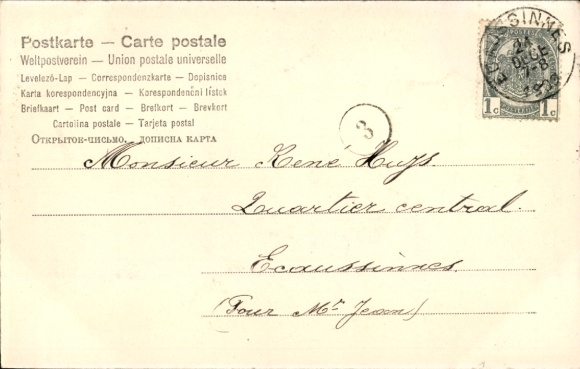 Postkarte — Carte postale
Weltpostverein — Union postale universelle
Levelező-Lap — Correspondenzkarte — Dopisnice
Karta korespondencyjna — Korespondenční lístek
Briefkaart — Post card — Brefkort — Brevkort
Cartolina postale — Tarjeta postal
Открытое-письмо. — дописна карта
3
1c 1c
Monsieur René Huys.
Quartier central.
Ecaussinnes.
(Pour Mr Jean)